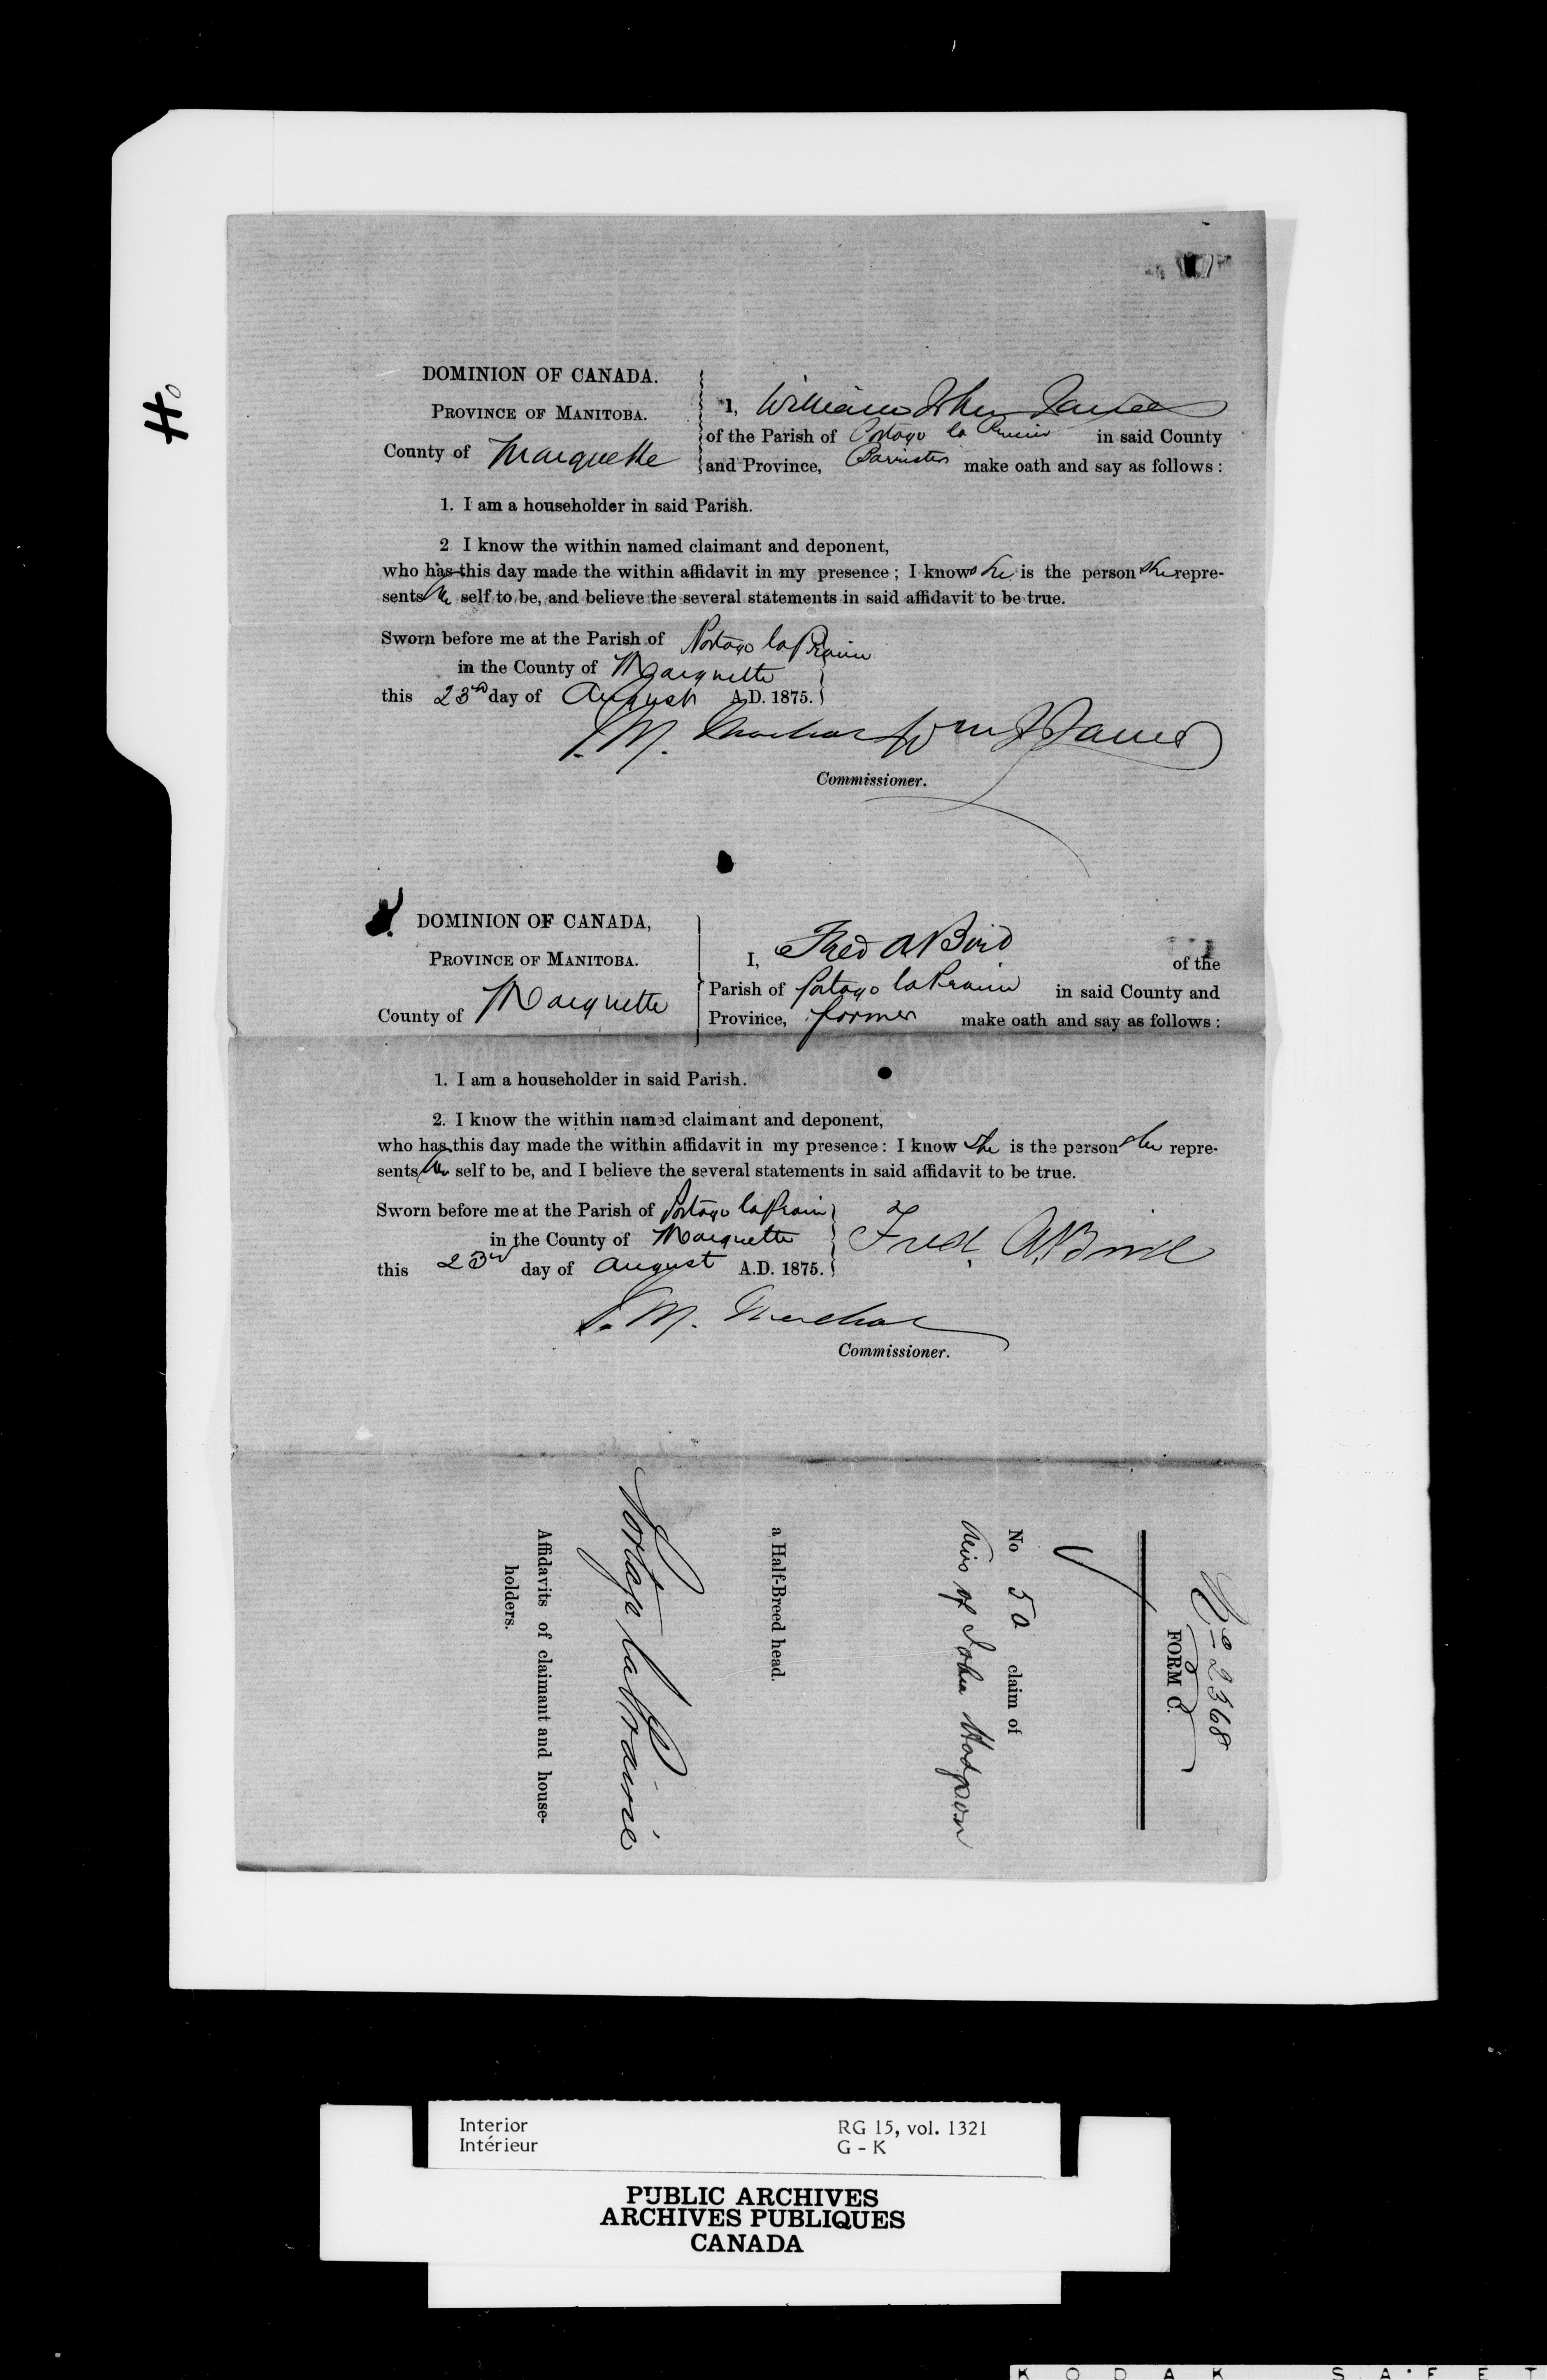 Ho
DOMINION OF CANADA.
PROVINCE OF MANITOBA.
County of Marquette
I, William John James
of the Parish of Portage la Prairie in said County
and Province, Barrister make oath and say as follows:
1. I am a householder in said Parish.
2 I know the within named claimant and deponent,
who has this day made the within affidavit in my presence; I know she is the person she repre-
sents her self to be, and believe the several statements in said affidavit to be true.
Sworn before me at the Parish of Portage la Prairie
in the County of Marquette
this 23rd day of August A.D. 1875.
Wm J James
Commissioner.
DOMINION OF CANADA,
PROVINCE OF MANITOBA.
County of Marquette
I, Fred A Bird of the
Parish of Portage la Prairie in said County and
Province, farmer make oath and say as follows:
1. I am a householder in said Parish.
2. I know the within named claimant and deponent,
who has this day made the within affidavit in my presence: I know she is the person she repre-
sents her self to be, and I believe the several statements in said affidavit to be true.
Sworn before me at the Parish of Portage la Prairie
in the County of Marquette
this 23rd day of August A.D. 1875.
Fred. A. Bird
Commissioner.
No 2368
FORM C.
No 50 claim of
Heirs of John Hodgson
a Half-Breed head.
Portage la Prairie
Affidavits of claimant and house-
holders.
Interior
Intérieur
RG 15, vol. 1321
G - K
PUBLIC ARCHIVES
ARCHIVES PUBLIQUES
CANADA
KODAK SAFET